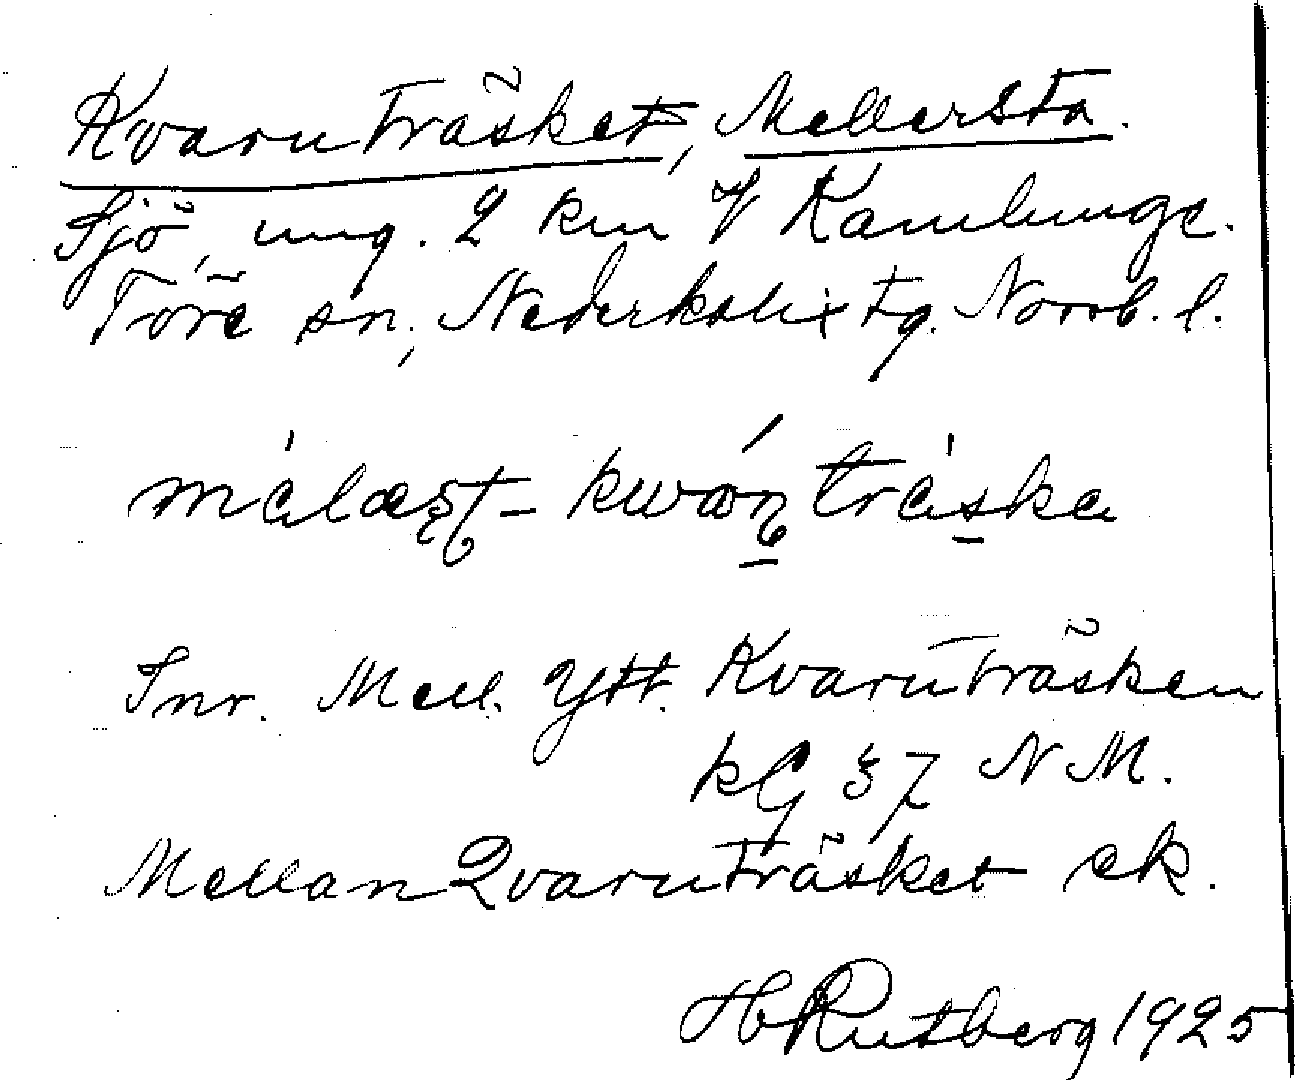 Kvarnträsket, Mellersta.
Sjö, ung. 2 km V Kamlunge.
Töre sn, Nederkalix tg. Norrb. l.
kwáṇtrǽska
Inr. Mell. Ytt. Kvarnträsken
kG 37 N M.
Mellan Qvarnträsket ek.
H Rutberg 1925